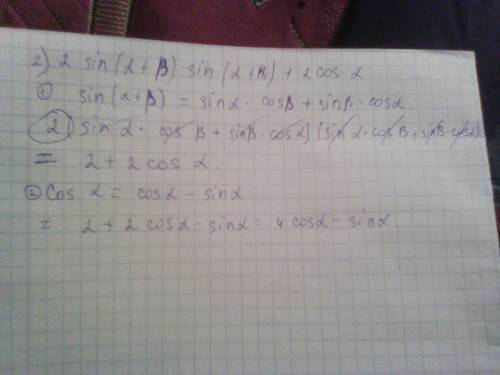 2) 2 sin(α+β) sin(α+β) + 2cos α
① sin(α+β) = sinα · cosβ + sinβ · cosα.
2(sin α · cos β + sinβ · cos α)(sin α · cos β + sinβ · cosα)
= 2 + 2 cos α.
② Cos α = cosα - sinα
= 2 + 2 cosα - sinα = 4 cosα - sinα.